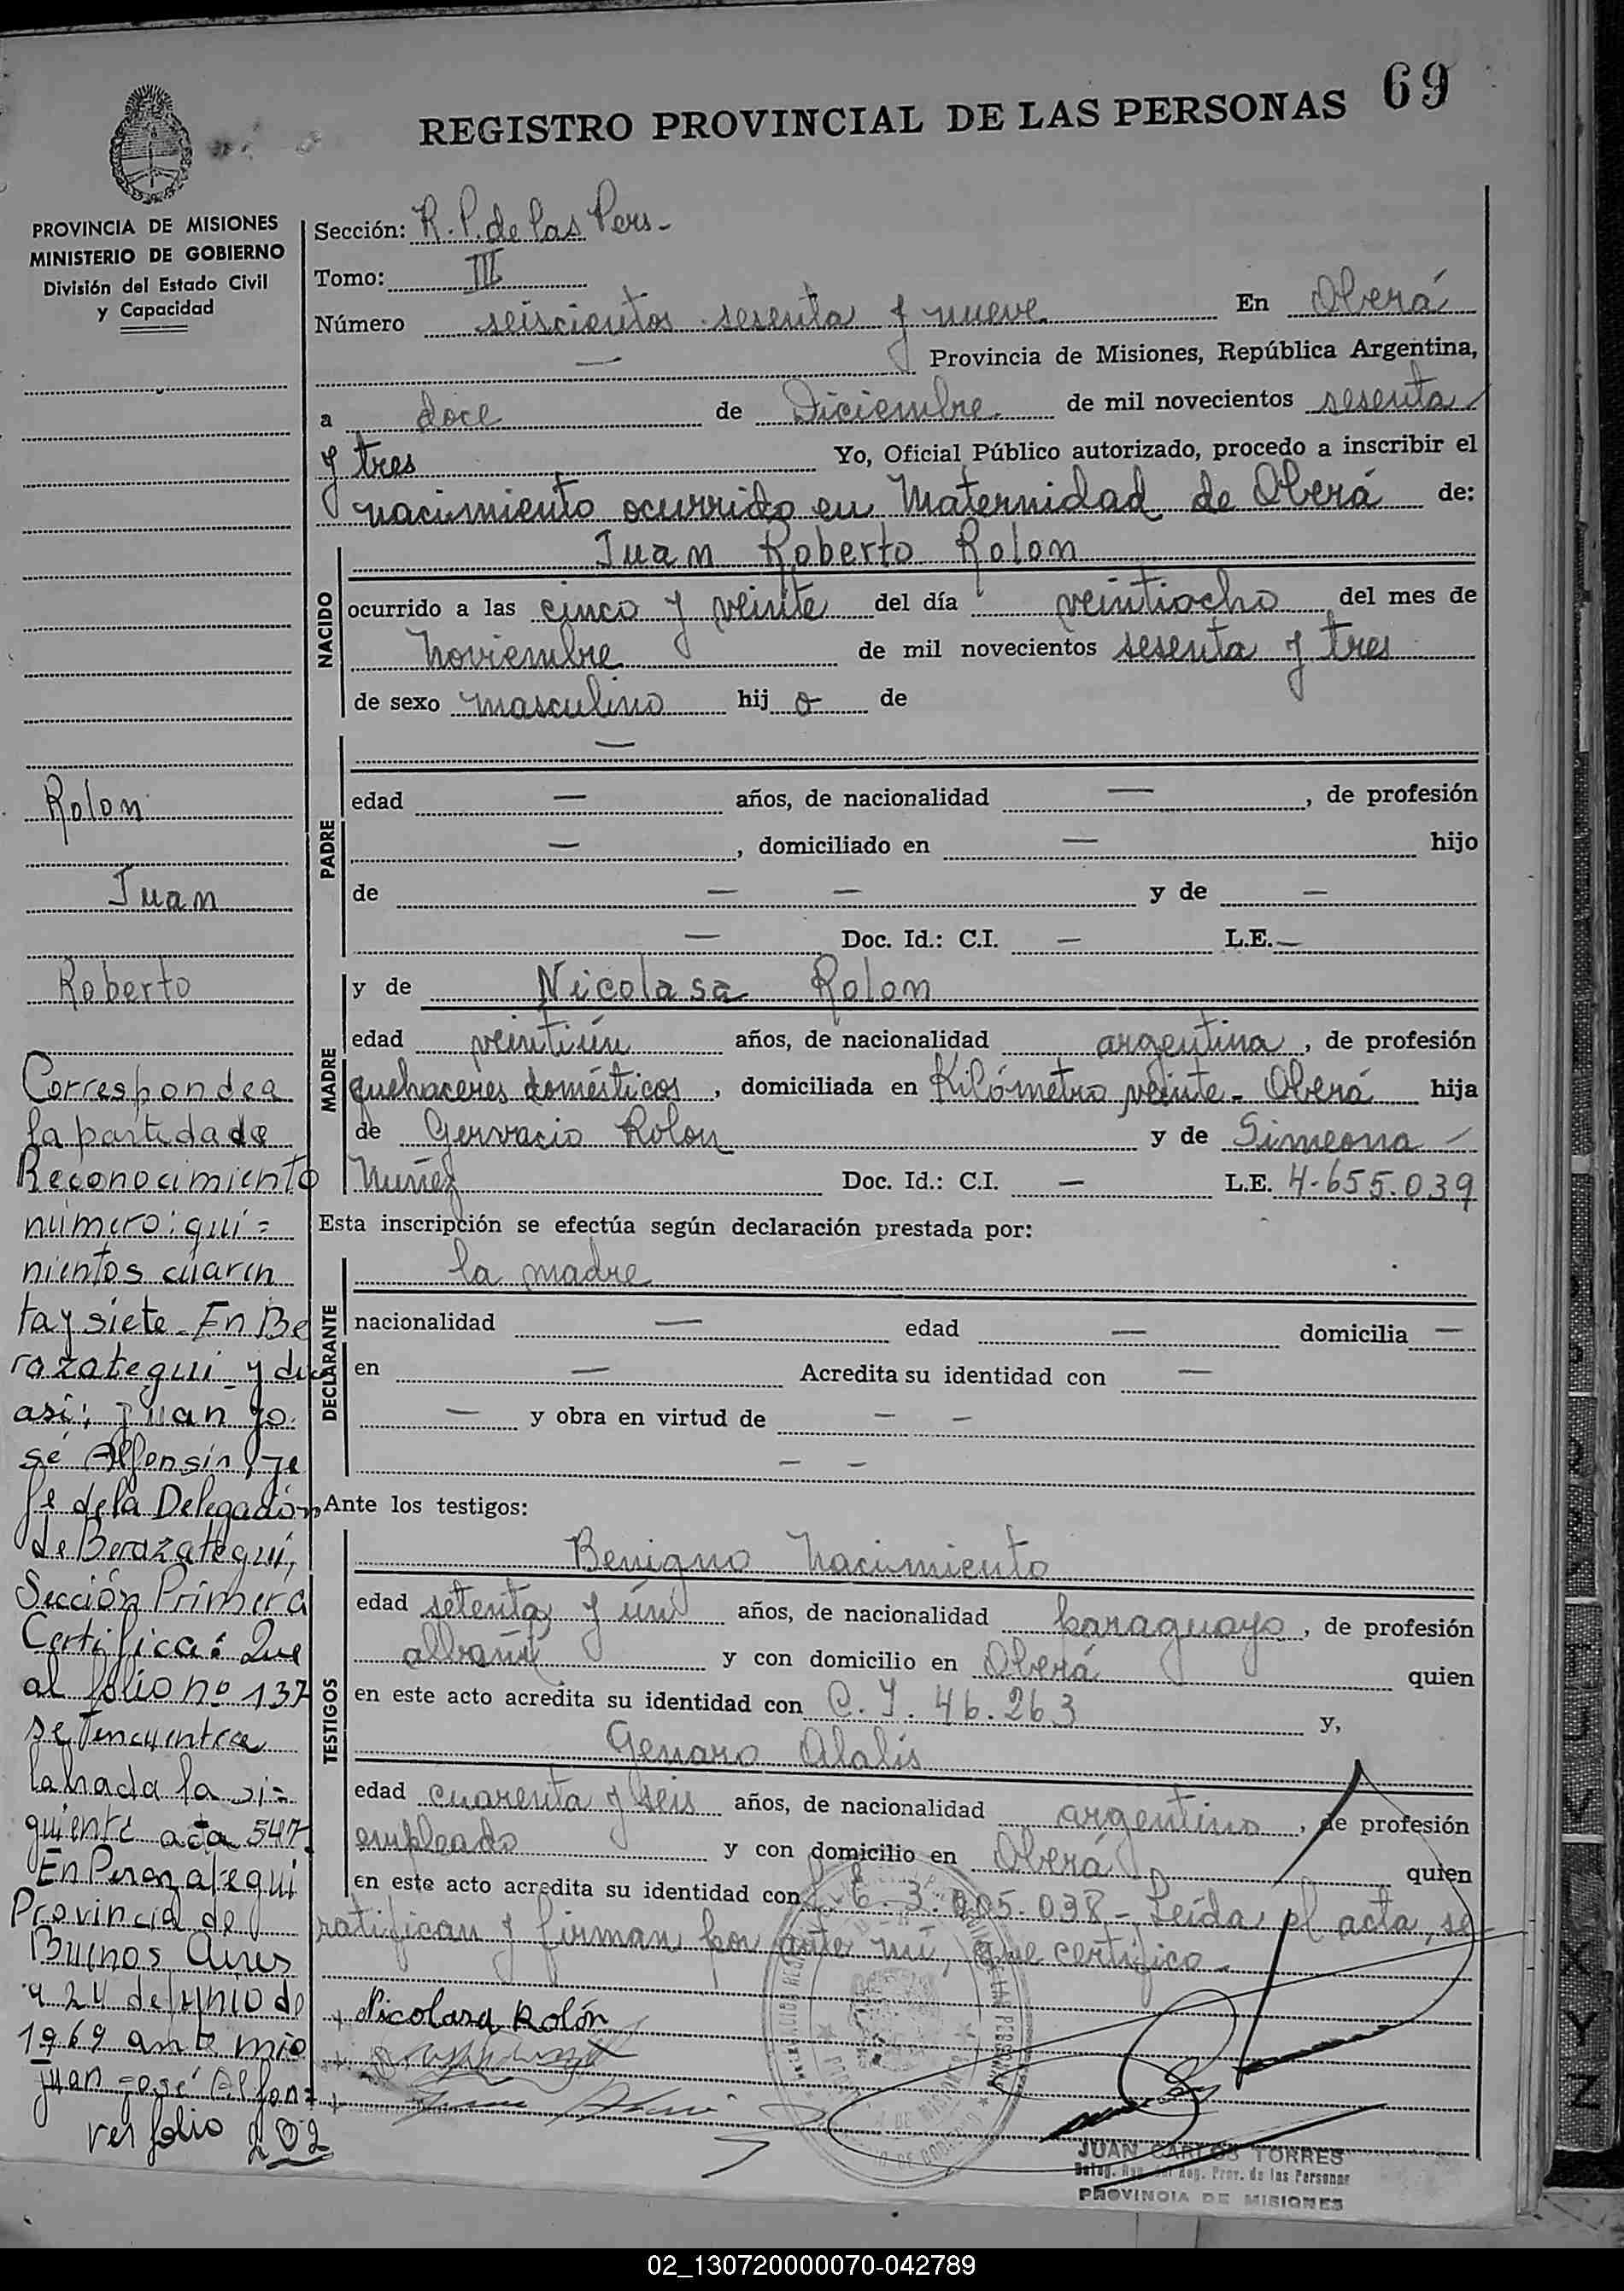 69
REGISTRO PROVINCIAL DE LAS PERSONAS
PROVINCIA DE MISIONES
MINISTERIO DE GOBIERNO
División del Estado Civil
y Capacidad
Sección: R. P. de las Pers-
Tomo: III
Número seiscientos sesenta y nueve En Oberá
— Provincia de Misiones, República Argentina,
a doce de Diciembre de mil novecientos sesenta
y tres Yo, Oficial Público autorizado, procedo a inscribir el
nacimiento ocurrido en Maternidad de Oberá de:
NACIDO
Juan Roberto Rolon
ocurrido a las cinco y veinte del día veintiocho del mes de
Noviembre de mil novecientos sesenta y tres
de sexo masculino hij o de
PADRE
—
edad — años, de nacionalidad —, de profesión
—, domiciliado en — hijo
de — — y de —
— Doc. Id.: C.I. — L.E. —
MADRE
y de Nicolasa Rolon
edad veintiún años, de nacionalidad argentina, de profesión
quehaceres domésticos, domiciliada en Kilómetro veinte - Oberá hija
de Gervacio Rolon y de Simeona —
Nuñez Doc. Id.: C.I. — L.E. 4.655.039
Esta inscripción se efectúa según declaración prestada por:
DECLARANTE
la madre
nacionalidad — edad — domicilia —
en — Acredita su identidad con —
— y obra en virtud de — —
— —
Ante los testigos:
TESTIGOS
Benigno Nacimiento
edad setenta y ún años, de nacionalidad paraguayo, de profesión
albañil y con domicilio en Oberá quien
en este acto acredita su identidad con C. I. 46.263 y,
Genaro Alalis
edad cuarenta y seis años, de nacionalidad argentino, de profesión
empleado y con domicilio en Oberá quien
en este acto acredita su identidad con L. E. 3.005.038 - Leída el acta, se
ratifican y firman por ante mí, que certifico -
Nicolasa Rolón
JUAN CARLOS TORRES
Reg. Prov. de las Personas
PROVINCIA DE MISIONES
Rolon
Juan
Roberto
Corresponde a
la partida de
Reconocimiento
número: qui=
nientos cuaren
ta y siete. En Be
razategui y dice
así; Juan Jo.
sé Alfonsín, Je
fe de la Delegación
de Berazategui,
Sección Primera
Certifica: Que
al folio nº 137
se encuentra
labrada la si=
guiente acta 547.
En Berazategui
Provincia de
Buenos Aires
a 24 de Junio de
1969 ante mi
Juan José Alfon=
ver folio 202
02_130720000070-042789